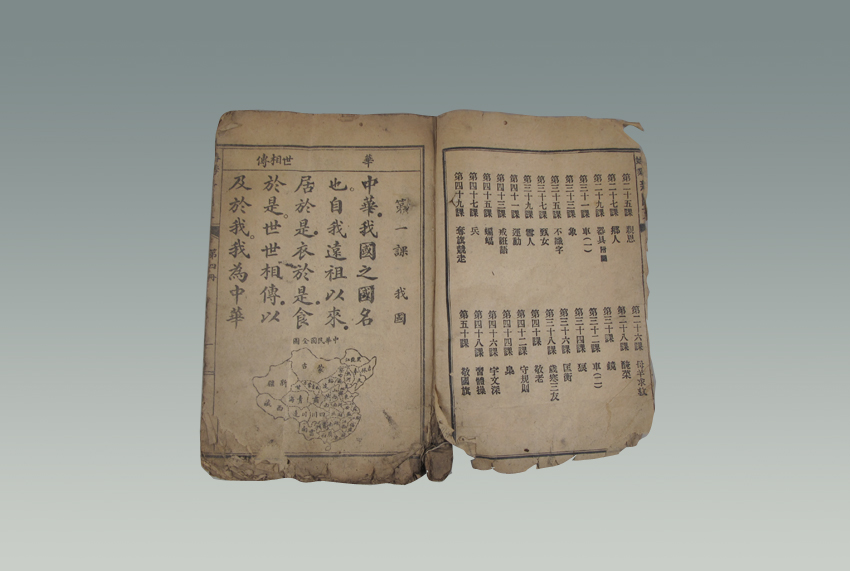 第二十五課 親恩
第二十七課 鄉人
第二十九課 器具 附圖
第三十一課 車(一)
第三十三課 象
第三十五課 不識字
第三十七課 甄女
第三十九課 雪人
第四十一課 運動
第四十三課 戒誑語
第四十五課 蝙蝠
第四十七課 兵
第四十九課 奪旗競走
第二十六課 母羊求救
第二十八課 麰栗
第三十課 鏡
第三十二課 車(二)
第三十四課 鼠
第三十六課 匡衡
第三十八課 歲寒三友
第四十課 敬老
第四十二課 守規則
第四十四課 梟
第四十六課 宇文深
第四十八課 習體操
第五十課 敬國旗
華
世相傳
第一課 我國
中華我國之國名
也自我遠祖以來
居於是衣於是食
於是世世相傳以
及於我我為中華
中華民國全圖
蒙古
新疆
青海
西藏
四川
第四冊